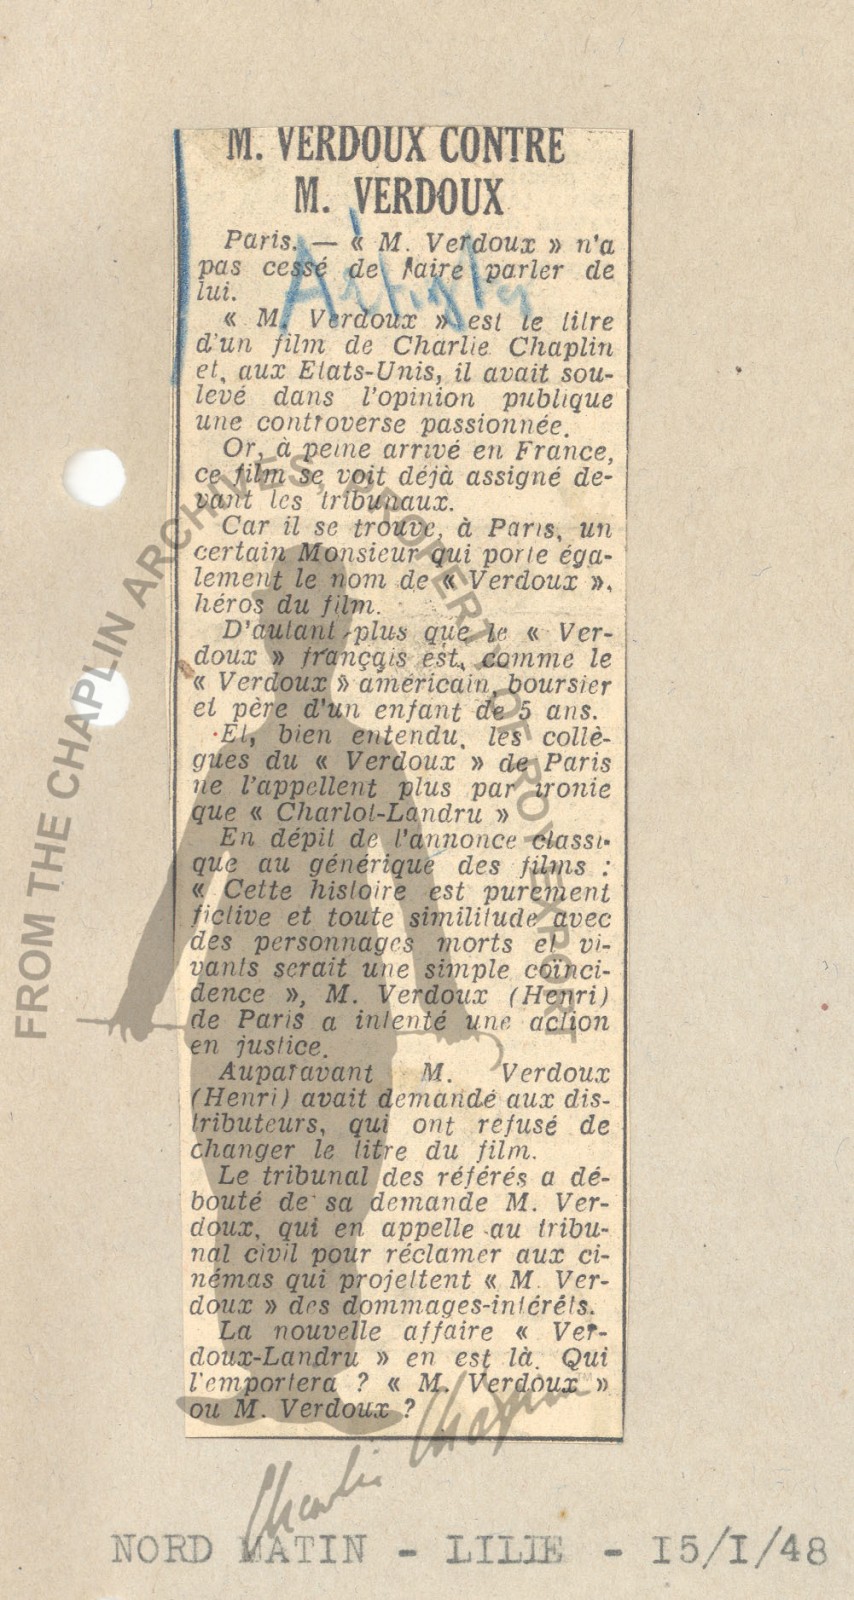 M. VERDOUX CONTRE
M. VERDOUX
Paris. — « M. Verdoux » n'a
pas cessé de faire parler de
lui.
« M. Verdoux » est le titre
d'un film de Charlie Chaplin
et, aux Etats-Unis, il avait sou-
levé dans l'opinion publique
une controverse passionnée.
Or, à peine arrivé en France,
ce film se voit déjà assigné de-
vant les tribunaux.
Car il se trouve, à Paris, un
certain Monsieur qui porte éga-
lement le nom de « Verdoux »,
héros du film.
D'autant plus que le « Ver-
doux » français est, comme le
« Verdoux » américain, boursier
et père d'un enfant de 5 ans.
Et, bien entendu, les collè-
gues du « Verdoux » de Paris
ne l'appellent plus par ironie
que « Charlot-Landru »
En dépit de l'annonce classi-
que au générique des films :
« Cette histoire est purement
fictive et toute similitude avec
des personnages morts et vi-
vants serait une simple coïnci-
dence », M. Verdoux (Henri)
de Paris a intenté une action
en justice.
Auparavant M. Verdoux
(Henri) avait demandé aux dis-
tributeurs, qui ont refusé de
changer le titre du film.
Le tribunal des référés a dé-
bouté de sa demande M. Ver-
doux, qui en appelle au tribu-
nal civil pour réclamer aux ci-
némas qui projettent « M. Ver-
doux » des dommages-intérêts.
La nouvelle affaire « Ver-
doux-Landru » en est là. Qui
l'emportera ? « M. Verdoux »
ou M. Verdoux ?
FROM THE CHAPLIN ARCHIVES, PROPERTY OF ROY EXPORT
Charlie Chaplin
NORD MATIN - LILLE - 15/I/48